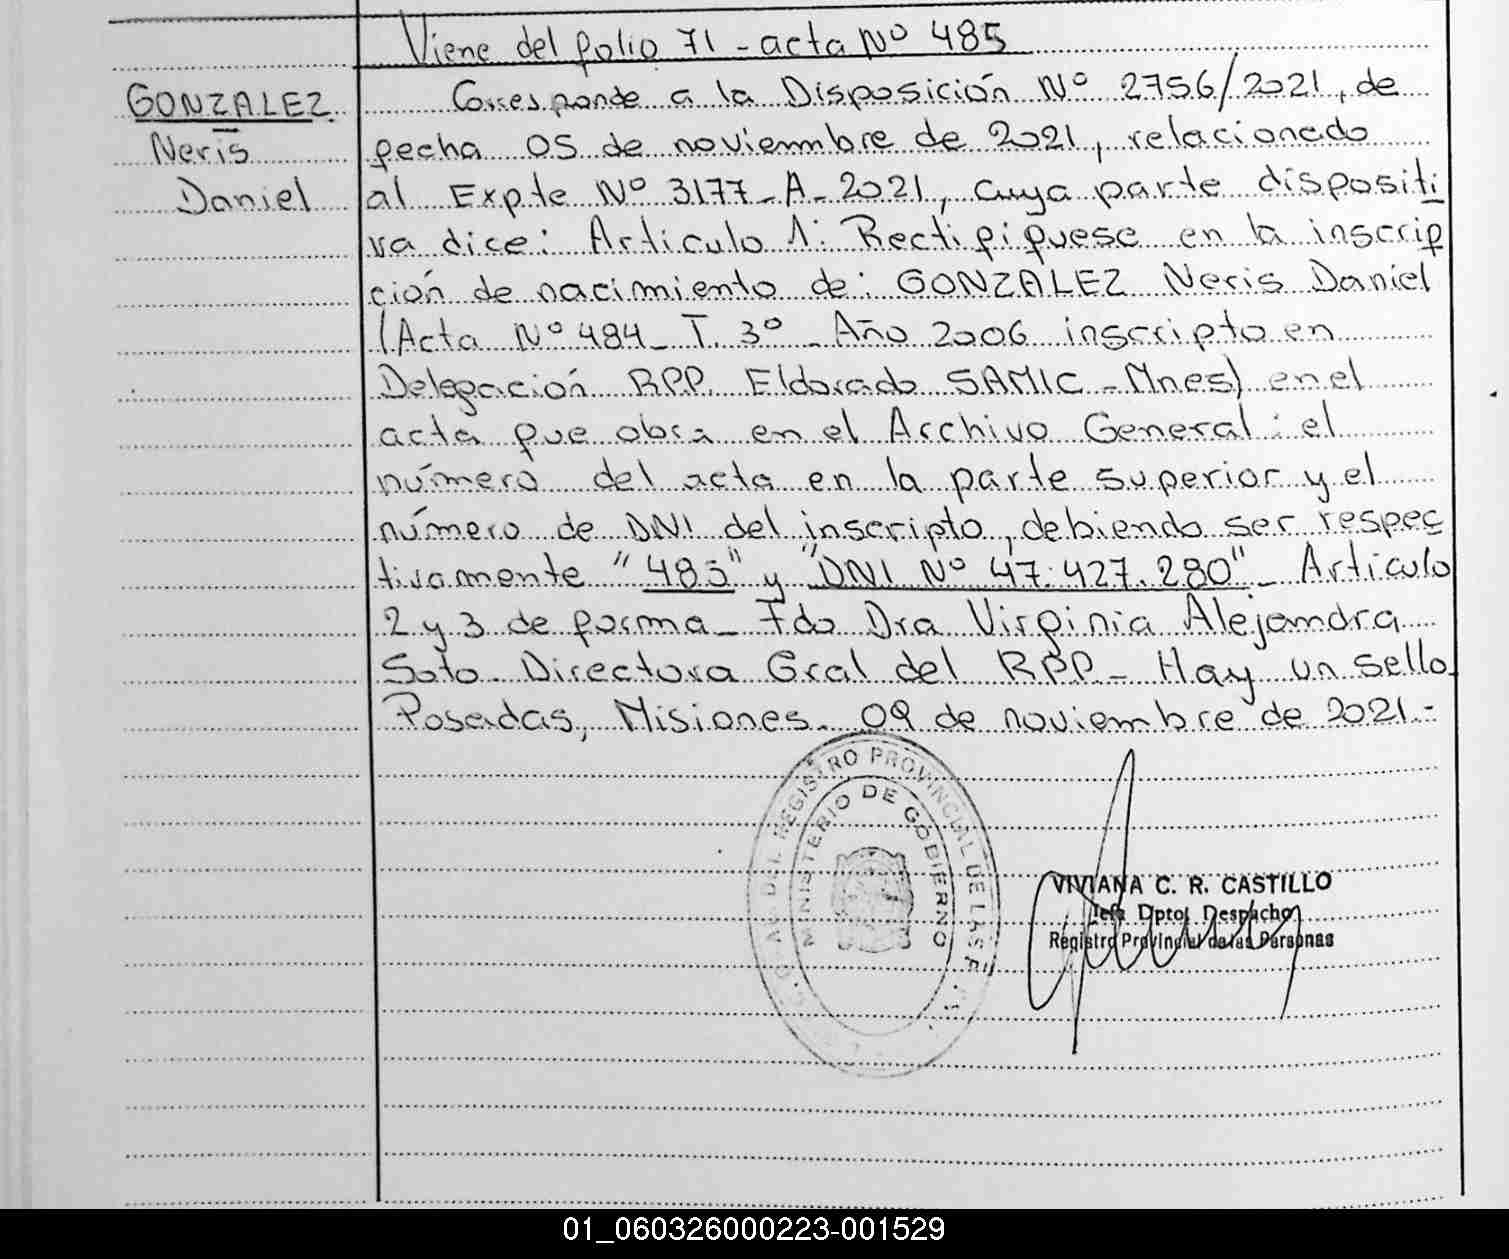 Viene del folio 71 - acta Nº 485
GONZALEZ
Neris
Daniel
Corresponde a la Disposición Nº 2756/2021, de
fecha 05 de noviembre de 2021, relacionado
al Expte Nº 3177-A-2021, cuya parte dispositi
va dice: Articulo 1: Rectifiquese en la inscrip
ción de nacimiento de: GONZALEZ Neris Daniel
(Acta Nº 484 - T. 3º - Año 2006 inscripto en
Delegación RPP. Eldorado SAMIC - Mnes) en el
acta que obra en el Archivo General: el
número del acta en la parte superior y el
número de DNI del inscripto, debiendo ser respec
tivamente "485" y "DNI Nº 47.427.280" - Articulo
2 y 3 de forma - Fdo Dra Virginia Alejandra
Soto - Directora Gral del RPP - Hay un sello
Posadas, Misiones. 09 de noviembre de 2021.-
REGISTRO PROVINCIAL DE LAS
MINISTERIO DE GOBIERNO
VIVIANA C. R. CASTILLO
Jefa Dpto. Despacho
Registro Provincial de las Personas
01_060326000223-001529